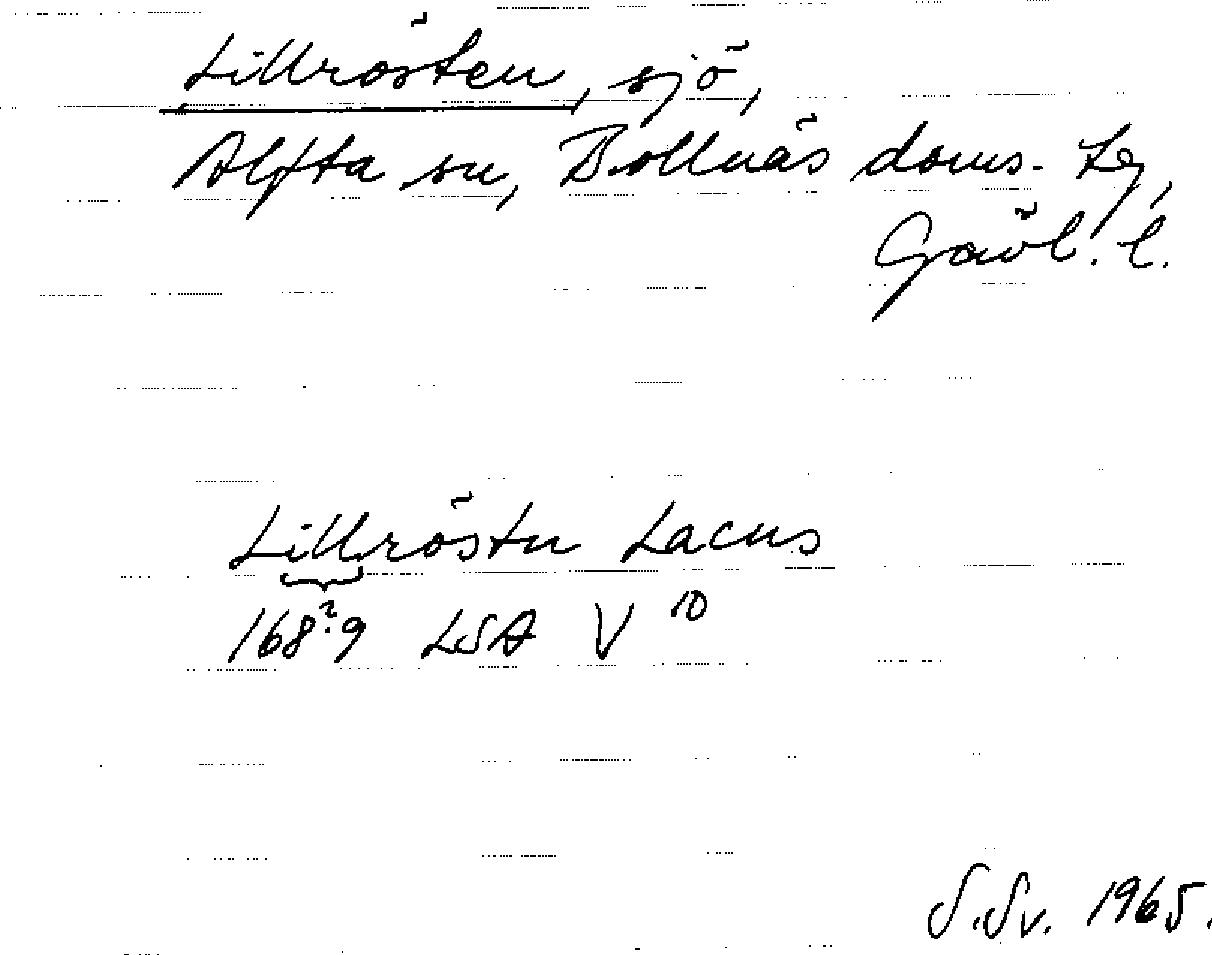 Lillrösten, sjö,
Alfta sn, Bollnäs doms. Lg,
Gävl. l.
Lillröstn Lacus
168?9 LSA V 10
S. Sv. 1965.